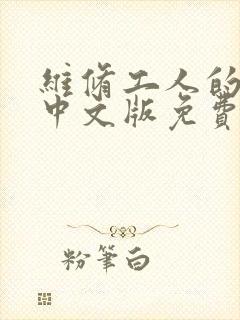 維脩工人的
中文版免費
粉筆白